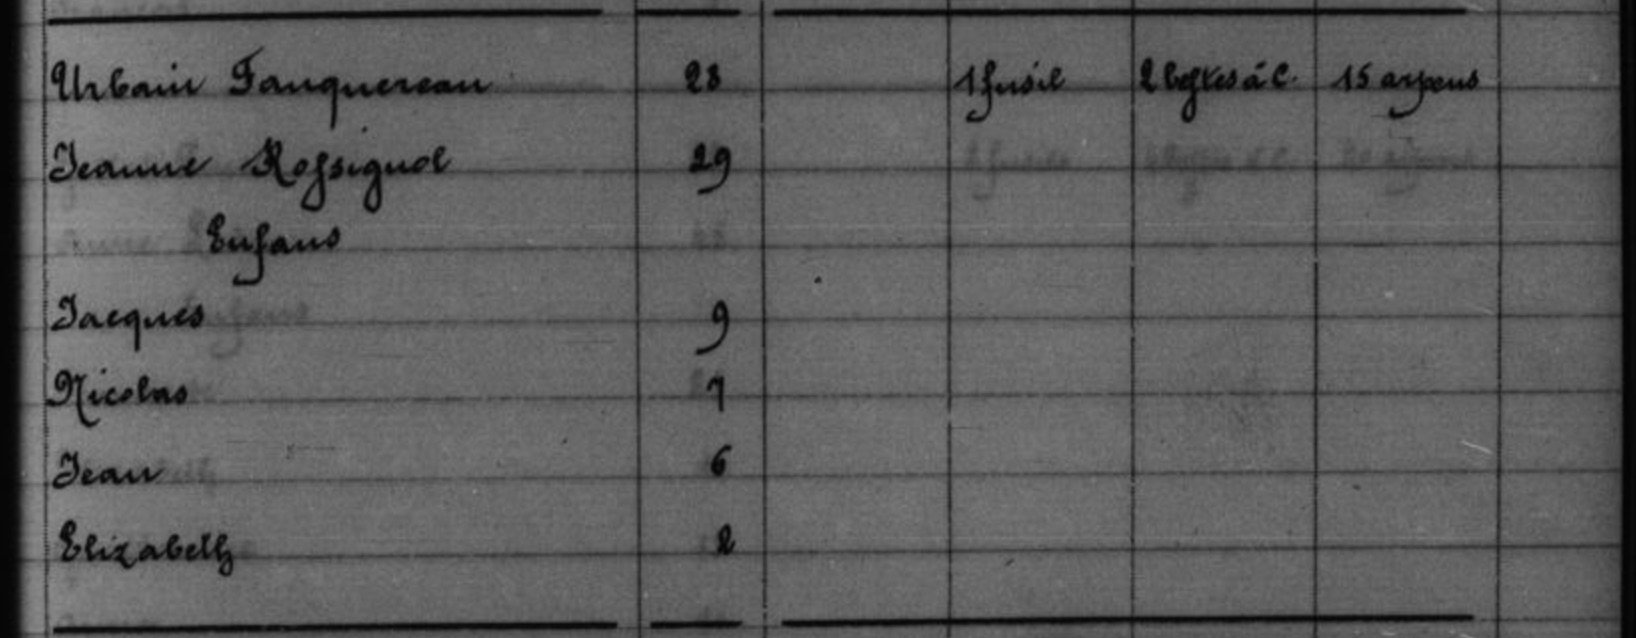 Urbain Fouquereau 28 1 fusil 2 bestes à C. 15 arpens
Jeanne Rossignol 29
Enfans
Jacques 9
Nicolas 7
Jean 6
Elizabeth 2